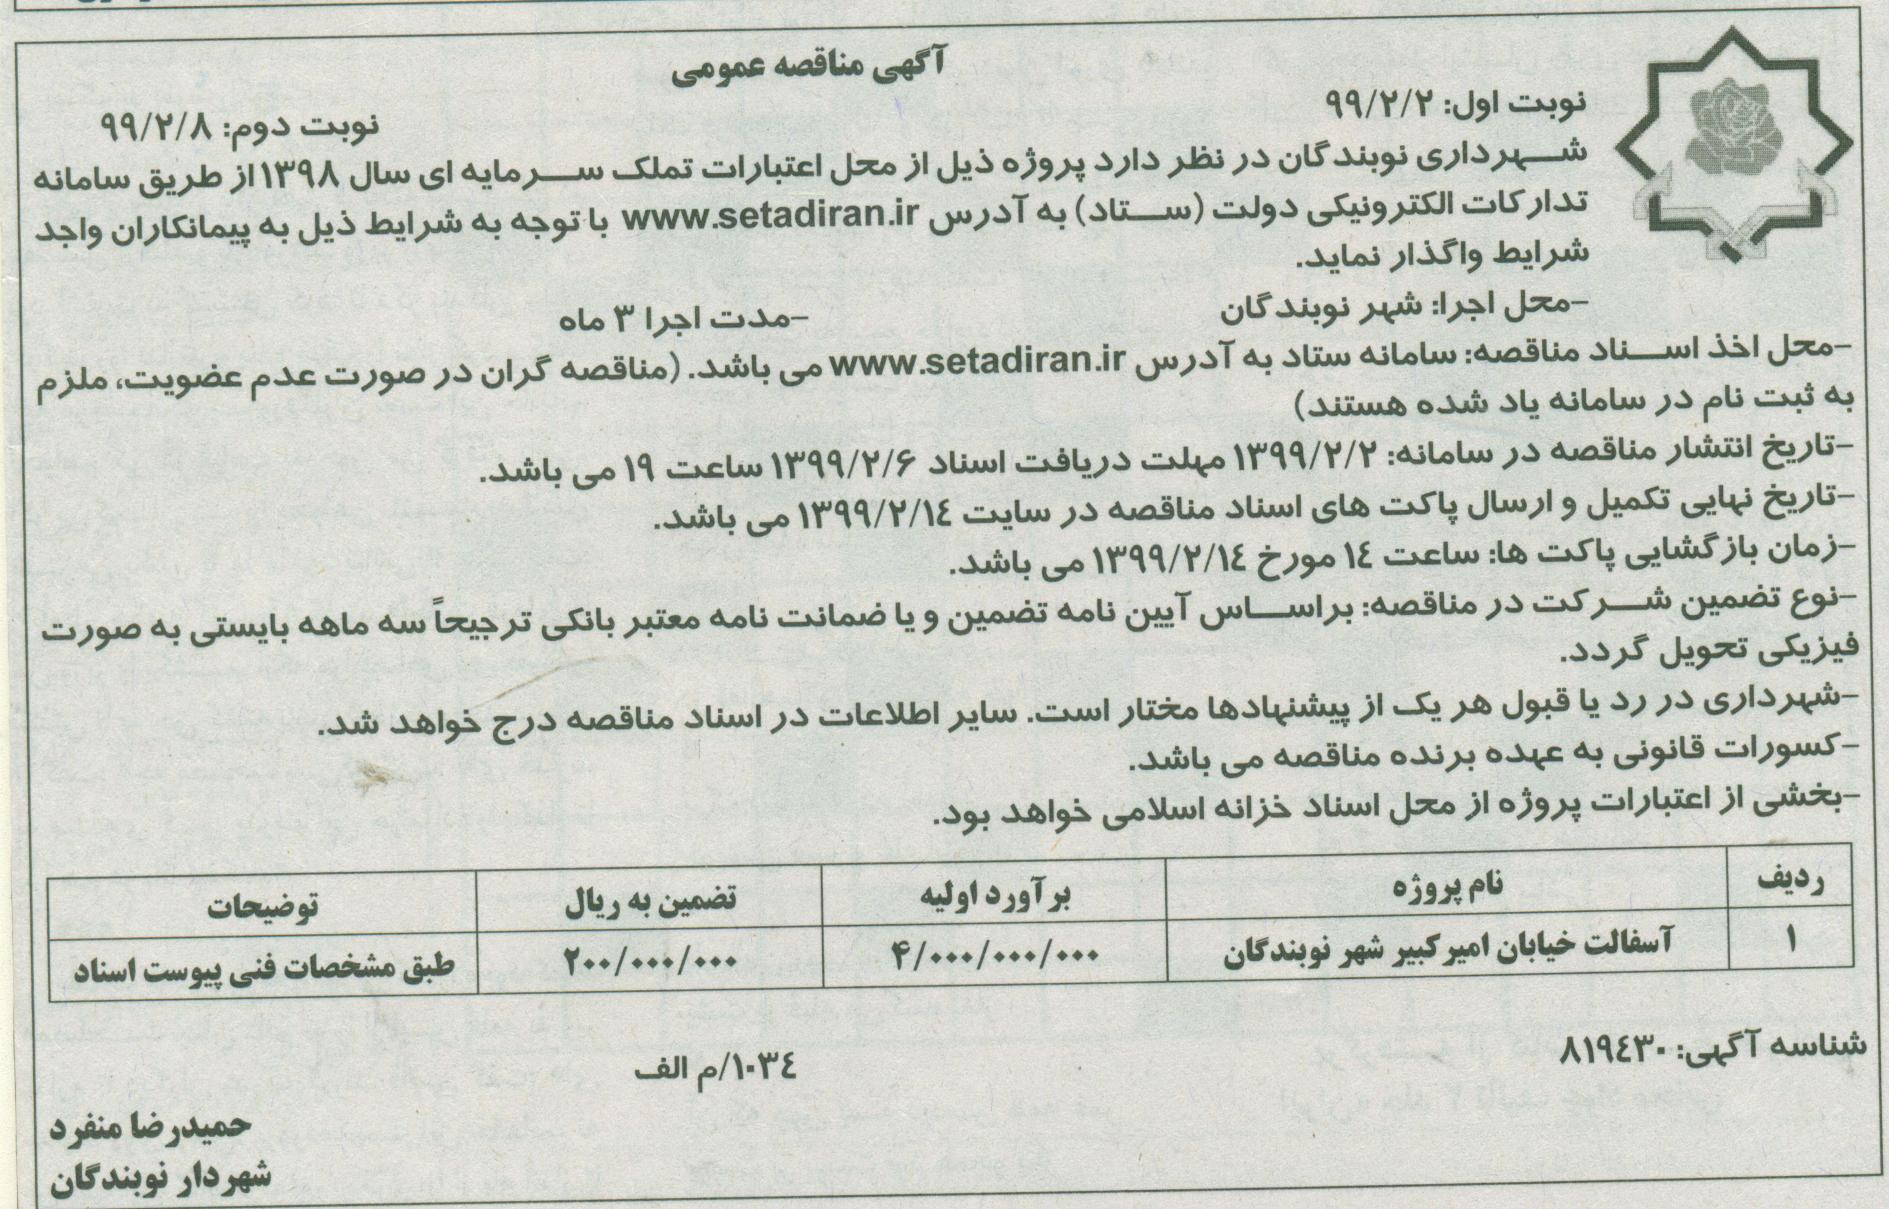 آگهی مناقصه عمومی
نوبت اول: ۹۹/۲/۲
نوبت دوم: ۹۹/۲/۸
شهرداری نوبندگان در نظر دارد پروژه ذیل از محل اعتبارات تملک سرمایه ای سال ۱۳۹۸ از طریق سامانه
تدارکات الکترونیکی دولت (ستاد) به آدرس www.setadiran.ir با توجه به شرایط ذیل به پیمانکاران واجد
شرایط واگذار نماید.
-محل اجرا: شهر نوبندگان
-مدت اجرا ۳ ماه
-محل اخذ اسناد مناقصه: سامانه ستاد به آدرس www.setadiran.ir می باشد. (مناقصه گران در صورت عدم عضویت، ملزم
به ثبت نام در سامانه یاد شده هستند)
-تاریخ انتشار مناقصه در سامانه: ۱۳۹۹/۲/۲ مهلت دریافت اسناد ۱۳۹۹/۲/۶ ساعت ۱۹ می باشد.
-تاریخ نهایی تکمیل و ارسال پاکت های اسناد مناقصه در سایت ۱۳۹۹/۲/۱٤ می باشد.
-زمان بازگشایی پاکت ها: ساعت ۱٤ مورخ ۱۳۹۹/۲/۱٤ می باشد.
-نوع تضمین شرکت در مناقصه: براساس آیین نامه تضمین و یا ضمانت نامه معتبر بانکی ترجیحاً سه ماهه بایستی به صورت
فیزیکی تحویل گردد.
-شهرداری در رد یا قبول هر یک از پیشنهادها مختار است. سایر اطلاعات در اسناد مناقصه درج خواهد شد.
-کسورات قانونی به عهده برنده مناقصه می باشد.
-بخشی از اعتبارات پروژه از محل اسناد خزانه اسلامی خواهد بود.
ردیف نام پروژه برآورد اولیه تضمین به ریال توضیحات
۱ آسفالت خیابان امیرکبیر شهر نوبندگان ۴/۰۰۰/۰۰۰/۰۰۰ ۲۰۰/۰۰۰/۰۰۰ طبق مشخصات فنی پیوست اسناد
شناسه آگهی: ۸۱۹٤۳۰
۱۰۳٤/م الف
حمیدرضا منفرد
شهردار نوبندگان